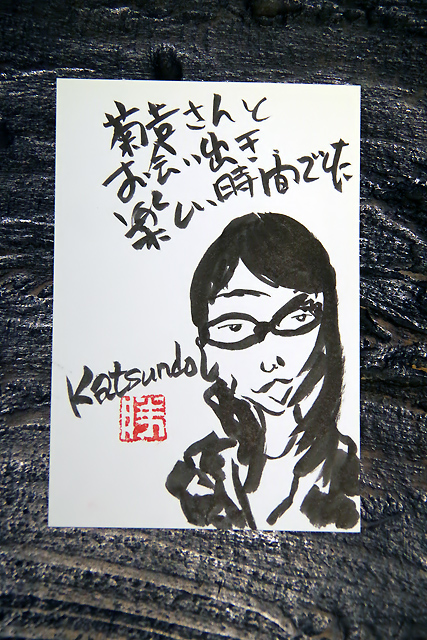 菊袁さんと
お会い出き
楽しい時間でした
Katsundo
勝